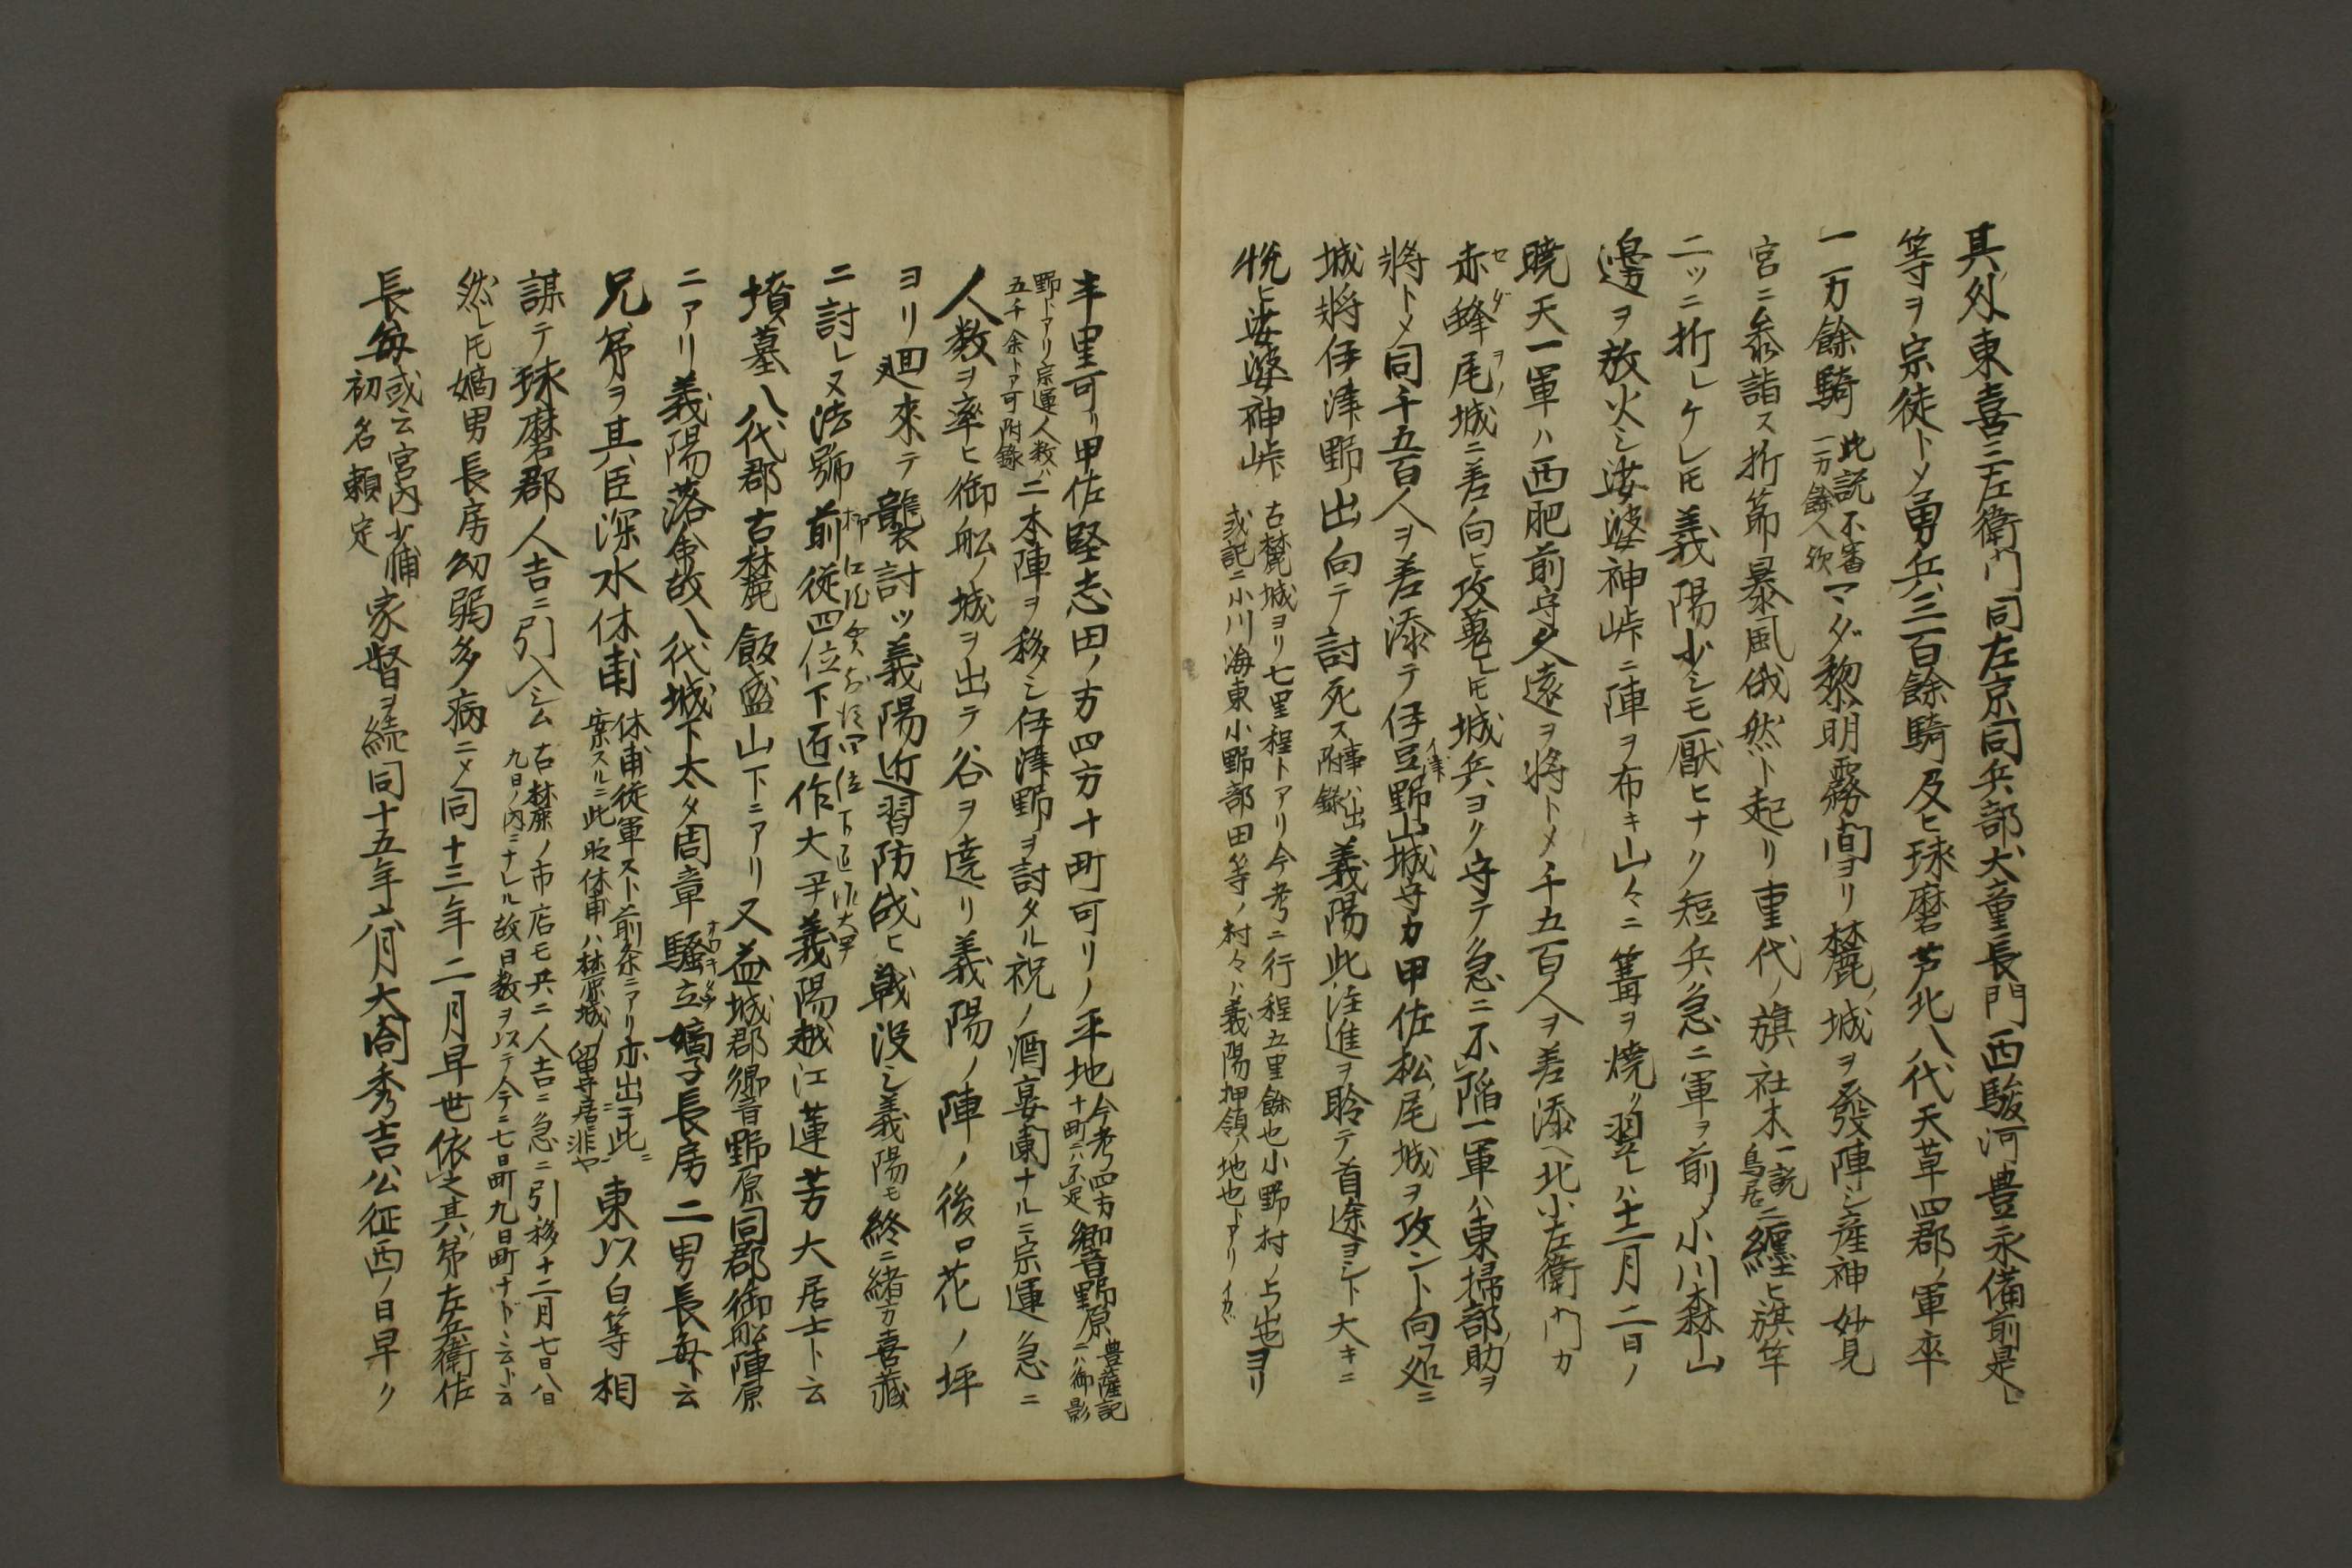 其外東喜三左衛門同左京同兵部犬童長門西駿河豊永備前是レ
等ヲ宗徒トメ勇兵三百餘騎及ヒ球磨芦北八代天草四郡ノ軍卒
一万餘騎此説不審一万餘人歟マダ黎明霧間ヨリ麓ノ城ヲ發陣シ産神妙見
宮ニ参詣ス折節暴風俄然ト起リ重代ノ旗社木一説鳥居ニ纏ヒ旗竿
二ツニ折レケレ𪜈義陽少シモ厭ヒナク短兵急ニ軍ヲ前メ小川森山
邊ヲ放火シ娑婆神峠ニ陣ヲ布キ山々ニ篝ヲ焼ク翌レハ十二月二日ノ
暁天一軍ハ西肥前守久遠ヲ将トメ千五百人ヲ差添ヘ北小左衛門カ
赤峰尾城ニ差向ヒ攻蒐レ𪜈城兵ヨク守テ急ニ不陥一軍ハ東掃部助ヲ
将トメ同千五百人ヲ差添テ伊豆野山城守カ甲佐松尾城ヲ攻ント向フ処ニ
城将伊津野出向テ討死ス事ハ出附録義陽此注進ヲ聆テ首途ヨシト大キニ
悦ヒ娑婆神峠古麓城ヨリ七里程トアリ今考ニ行程五里餘也小野村ノ上ヘ也或記ニ小川海東小野部田等ノ村々ハ義陽押領ノ地也トアリイカヾヨリ
半里可リ甲佐堅志田ノ方四方十町可リノ平地今考四方十町ニハ不足響野原豊薩記ニハ御影
野トアリ宗運人数ハ五千余トア可附録ニ本陣ヲ移シ伊津野ヲ討タル祝ノ酒宴闌ナルニ宗運急ニ
人数ヲ率ヒ御舩ノ城ヲ出テ谷ヲ遶リ義陽ノ陣ノ後口花ノ坪
ヨリ廻来テ襲討ツ義陽近習防戦ヒ戦没シ義陽モ終ニ緒方喜蔵
ニ討レヌ法號前従四位下匠作大尹義陽越江蓮芳大居士ト云
墳墓八代郡古麓飯盛山下ニアリ又益城郡郷音野原同郡御舩陣原
ニアリ義陽落命故八代城下太タ周章騒立嫡子長房二男長毎ト云
兄弟ヲ其臣深水休甫休甫従軍スト前条ニアリ亦出于此ニ案スルニ此時休甫ハ麓城ノ留守居ニ非ヤ東以白等相
謀テ球磨郡人吉ニ引入シム古麓ノ市店モ共ニ人吉ニ急ニ引移十二月七日八日九日ノ内ニナレル故日数ヲ以テ今ニ七日町九日町ナドヽ云ト云
然レ𪜈嫡男長房幼弱多病ニメ同十三年二月早世依之其弟左兵衛佐
長毎或云宮内少輔初名頼定家督ヲ続同十五年六月大閤秀吉公征西ノ日早ク